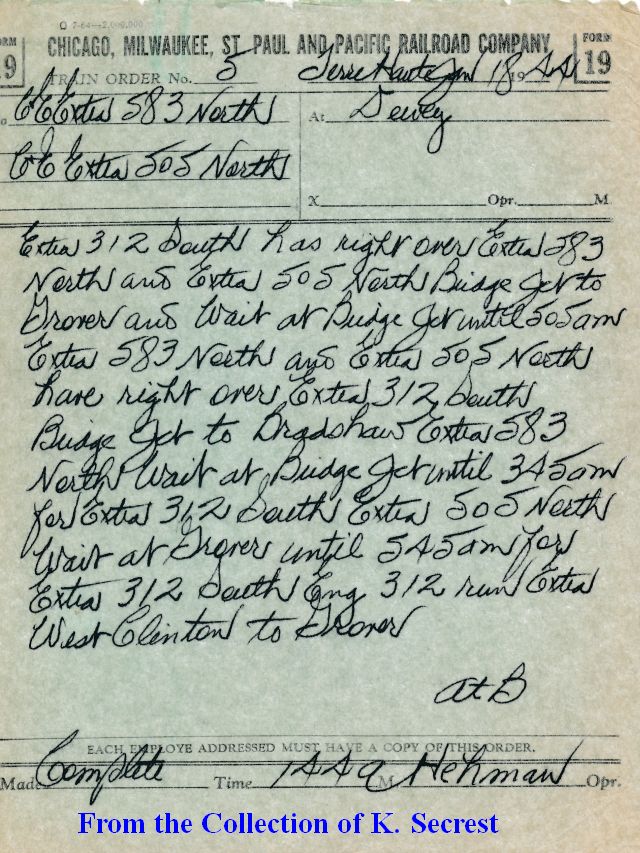 O 7-64—2,000,000
FORM 19
CHICAGO, MILWAUKEE, ST. PAUL AND PACIFIC RAILROAD COMPANY
FORM 19
TRAIN ORDER No. 5 Terre Haute Jan 18 1944
To C&E Extra 583 North At Dewey
C&E Extra 505 North
X Opr. M
Extra 312 South has right over Extra 583
North and Extra 505 North Bridge Jct to
Grover and Wait at Bridge Jct until 505am
Extra 583 North and Extra 505 North
have right over Extra 312 South
Bridge Jct to Bradshaw Extra 583
North Wait at Bridge Jct until 345am
for Extra 312 South Extra 505 North
Wait at Grover until 545am for
Extra 312 South Eng 312 run Extra
West Clinton to Grover
EACH EMPLOYE ADDRESSED MUST HAVE A COPY OF THIS ORDER.
Made Complete Time 144a M Hehman Opr.
From the Collection of K. Secrest